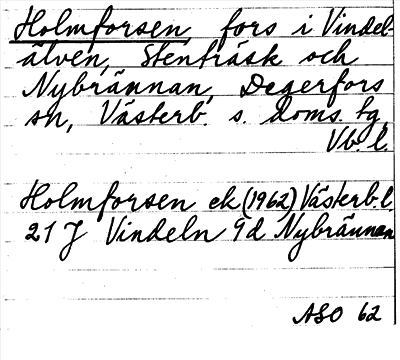 Holmforsen, fors i Vindel-
älven, Stenträsk och
Nybrännan, Degerfors
sn, Västerb. s. doms. tg,
Vb. l.
Holmforsen ek (1962) Västerb. l.
21 J Vindeln 9d Nybrännan
ASO 62